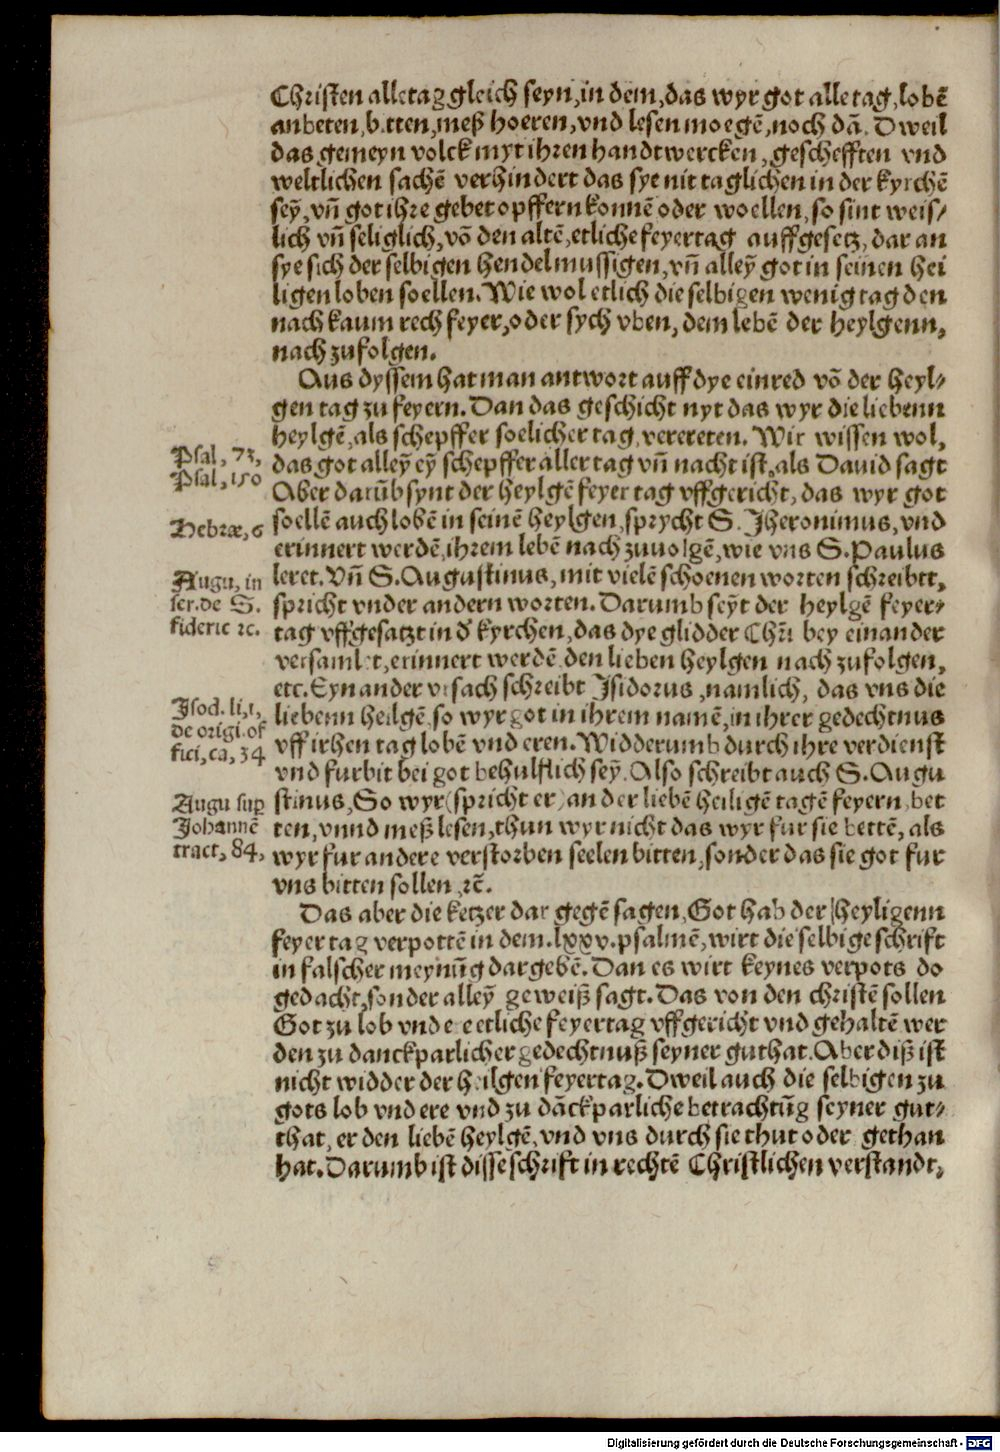 Christen alle tag gleich seyn, in dem, das wyr got alle tag, lobē
anbeten, bitten, meß hoeren, vnd lesen moegē, noch dā. Dweil
das gemeyn volck myt ihren handtwercken, geschefften vnd
weltlichen sachē verhindert das sye nit taglichen in der kyrchē
seȳ, vn̄ got ihre gebet opffern konnē oder woellen, so sint weis⸗
lich vn̄ seliglich, vō den altē, etliche feyertag auffgesetz, dar an
sye sich der selbigen hendel mussigen, vn̄ alleȳ got in seinen hei
ligen loben soellen. Wie wol etlich die selbigen wenig tag den
nach kaum rech feyer, oder sych vben, dem lebē der heylgenn,
nach zufolgen.
Aus dyssem hat man antwort auff dye einred vō der heyl⸗
gen tag zu feyern. Dan das geschicht nyt das wyr die liebenn
heylgē, als schepffer soelicher tag, verereten. Wir wissen wol,
Psal, 73,
das got alleȳ eȳ schepffer aller tag vn̄ nacht ist, als Dauid sagt
Psal, 150
Aber darūb synt der heylgē feyer tag vffgericht, das wyr got
soellē auch lobē in seinē heylgen, sprycht S. Jheronimus, vnd
Hebræ, 6
erinnert werdē, ihrem lebē nach zuuolgē, wie vns S. Paulus
leret. Vn̄ S. Augustinus, mit vielē schoenen worten schreibtt,
Augu, in
spricht vnder andern worten. Darumb seȳt der heylgē feyer⸗
ser. de S.
tag vffgesatzt in d' kyrchen, das dye glidder Chr̄i bey einander
fideric ⁊c.
versamlet, erinnert werdē den lieben heylgen nach zufolgen,
etc. Eyn ander vrsach schreibt Isidorus, namlich, das vns die
Jsod. li, 1,
liebenn heilgē, so wyr got in ihrem namē, in ihrer gedechtnus
de origi. of
vff irhen tag lobē vnd eren. Widderumb durch ihre verdienst
fici, ca, 34
vnd furbit bei got behulflich seȳ. Also schreibt auch S. Augu
Augu sup
stinus, So wyr (spricht er) an der liebē heiligē tagē feyern, bet
Johannē
ten, vnnd meß lesen, thun wyr nicht das wyr fur sie bettē, als
tract, 84,
wyr fur andere verstorben seelen bitten, sonder das sie got fur
vns bitten sollen, ⁊c̄.
Das aber die ketzer dar gegē sagen, Got hab der heyligenn
feyer tag verpottē in dem. lxxv. psalmē, wirt die selbige schrift
in falscher meynūg dargebē. Dan es wirt keynes verpots do
gedacht, sonder alleȳ geweiß sagt. Das von den christē sollen
Got zu lob vnd ere etliche feyertag vffgericht vnd gehaltē wer
den zu danckparlicher gedechtnuß seyner guthat. Aber diß ist
nicht widder der heilgen feyertag. Dweil auch die selbigen zu
gots lob vnd ere vnd zu dāckparliche betrachtūg seyner gut⸗
that, er den liebē heylgē, vnd vns durch sie thut oder gethan
hat. Darumb ist disse schrift in rechtē Christlichen verstandt,
Digitalisierung gefördert durch die Deutsche Forschungsgemeinschaft - DFG